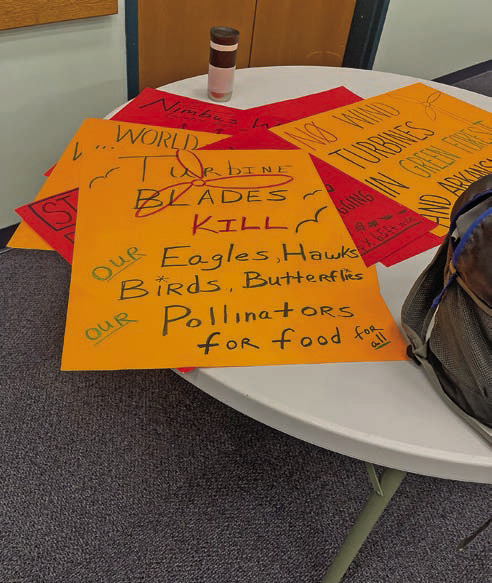 Nimbus
WORLD
W
ST
Turbine
BLADES
KILL
OUR Eagles, Hawks
Birds, Butterflies
OUR Pollinators
for food for all
NO WIND
TURBINES
IN GREEN FOREST
AND ARKANSAS
GOING